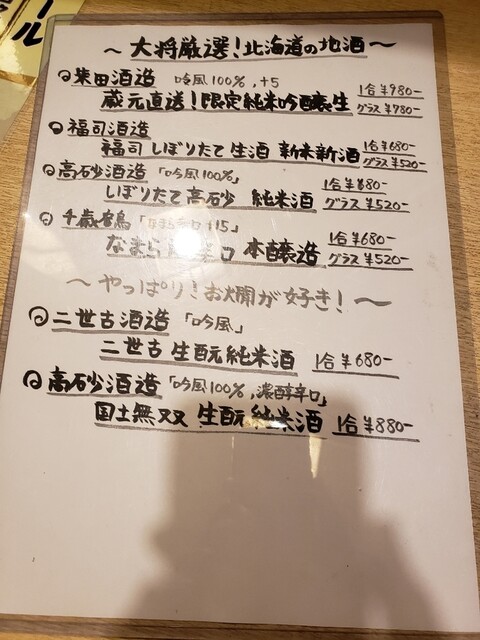 ール
～大将厳選!北海道の地酒～
柴田酒造 吟風100%,+5
蔵元直送!限定純米吟醸生 1合¥980-
グラス¥780-
福司酒造
福司 しぼりたて 生酒 新米新酒 1合¥680-
グラス¥520-
高砂酒造「吟風100%」
しぼりたて高砂 純米酒 1合¥680-
グラス¥520-
千歳鶴 +15」
なまら 辛口 本醸造 1合¥680-
グラス¥520-
～やっぱり!お燗が好き!～
二世古酒造「吟風」
二世古 生酛純米酒 1合¥680-
高砂酒造「吟風100%,濃醇辛口」
国士無双 生酛純米酒 1合¥880-